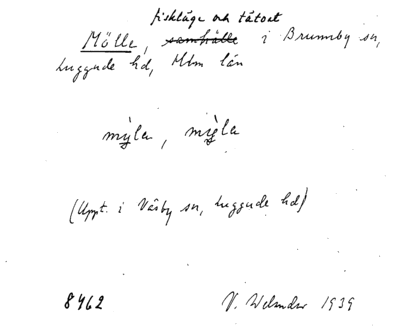 fiskläge och tätort
Mölle, samhälle i Brunnby sn,
Luggude hd, Mlm län
mỳla, mỳla
(Uppt. i Väsby sn, Luggude hd)
8462 V. Welander 1939